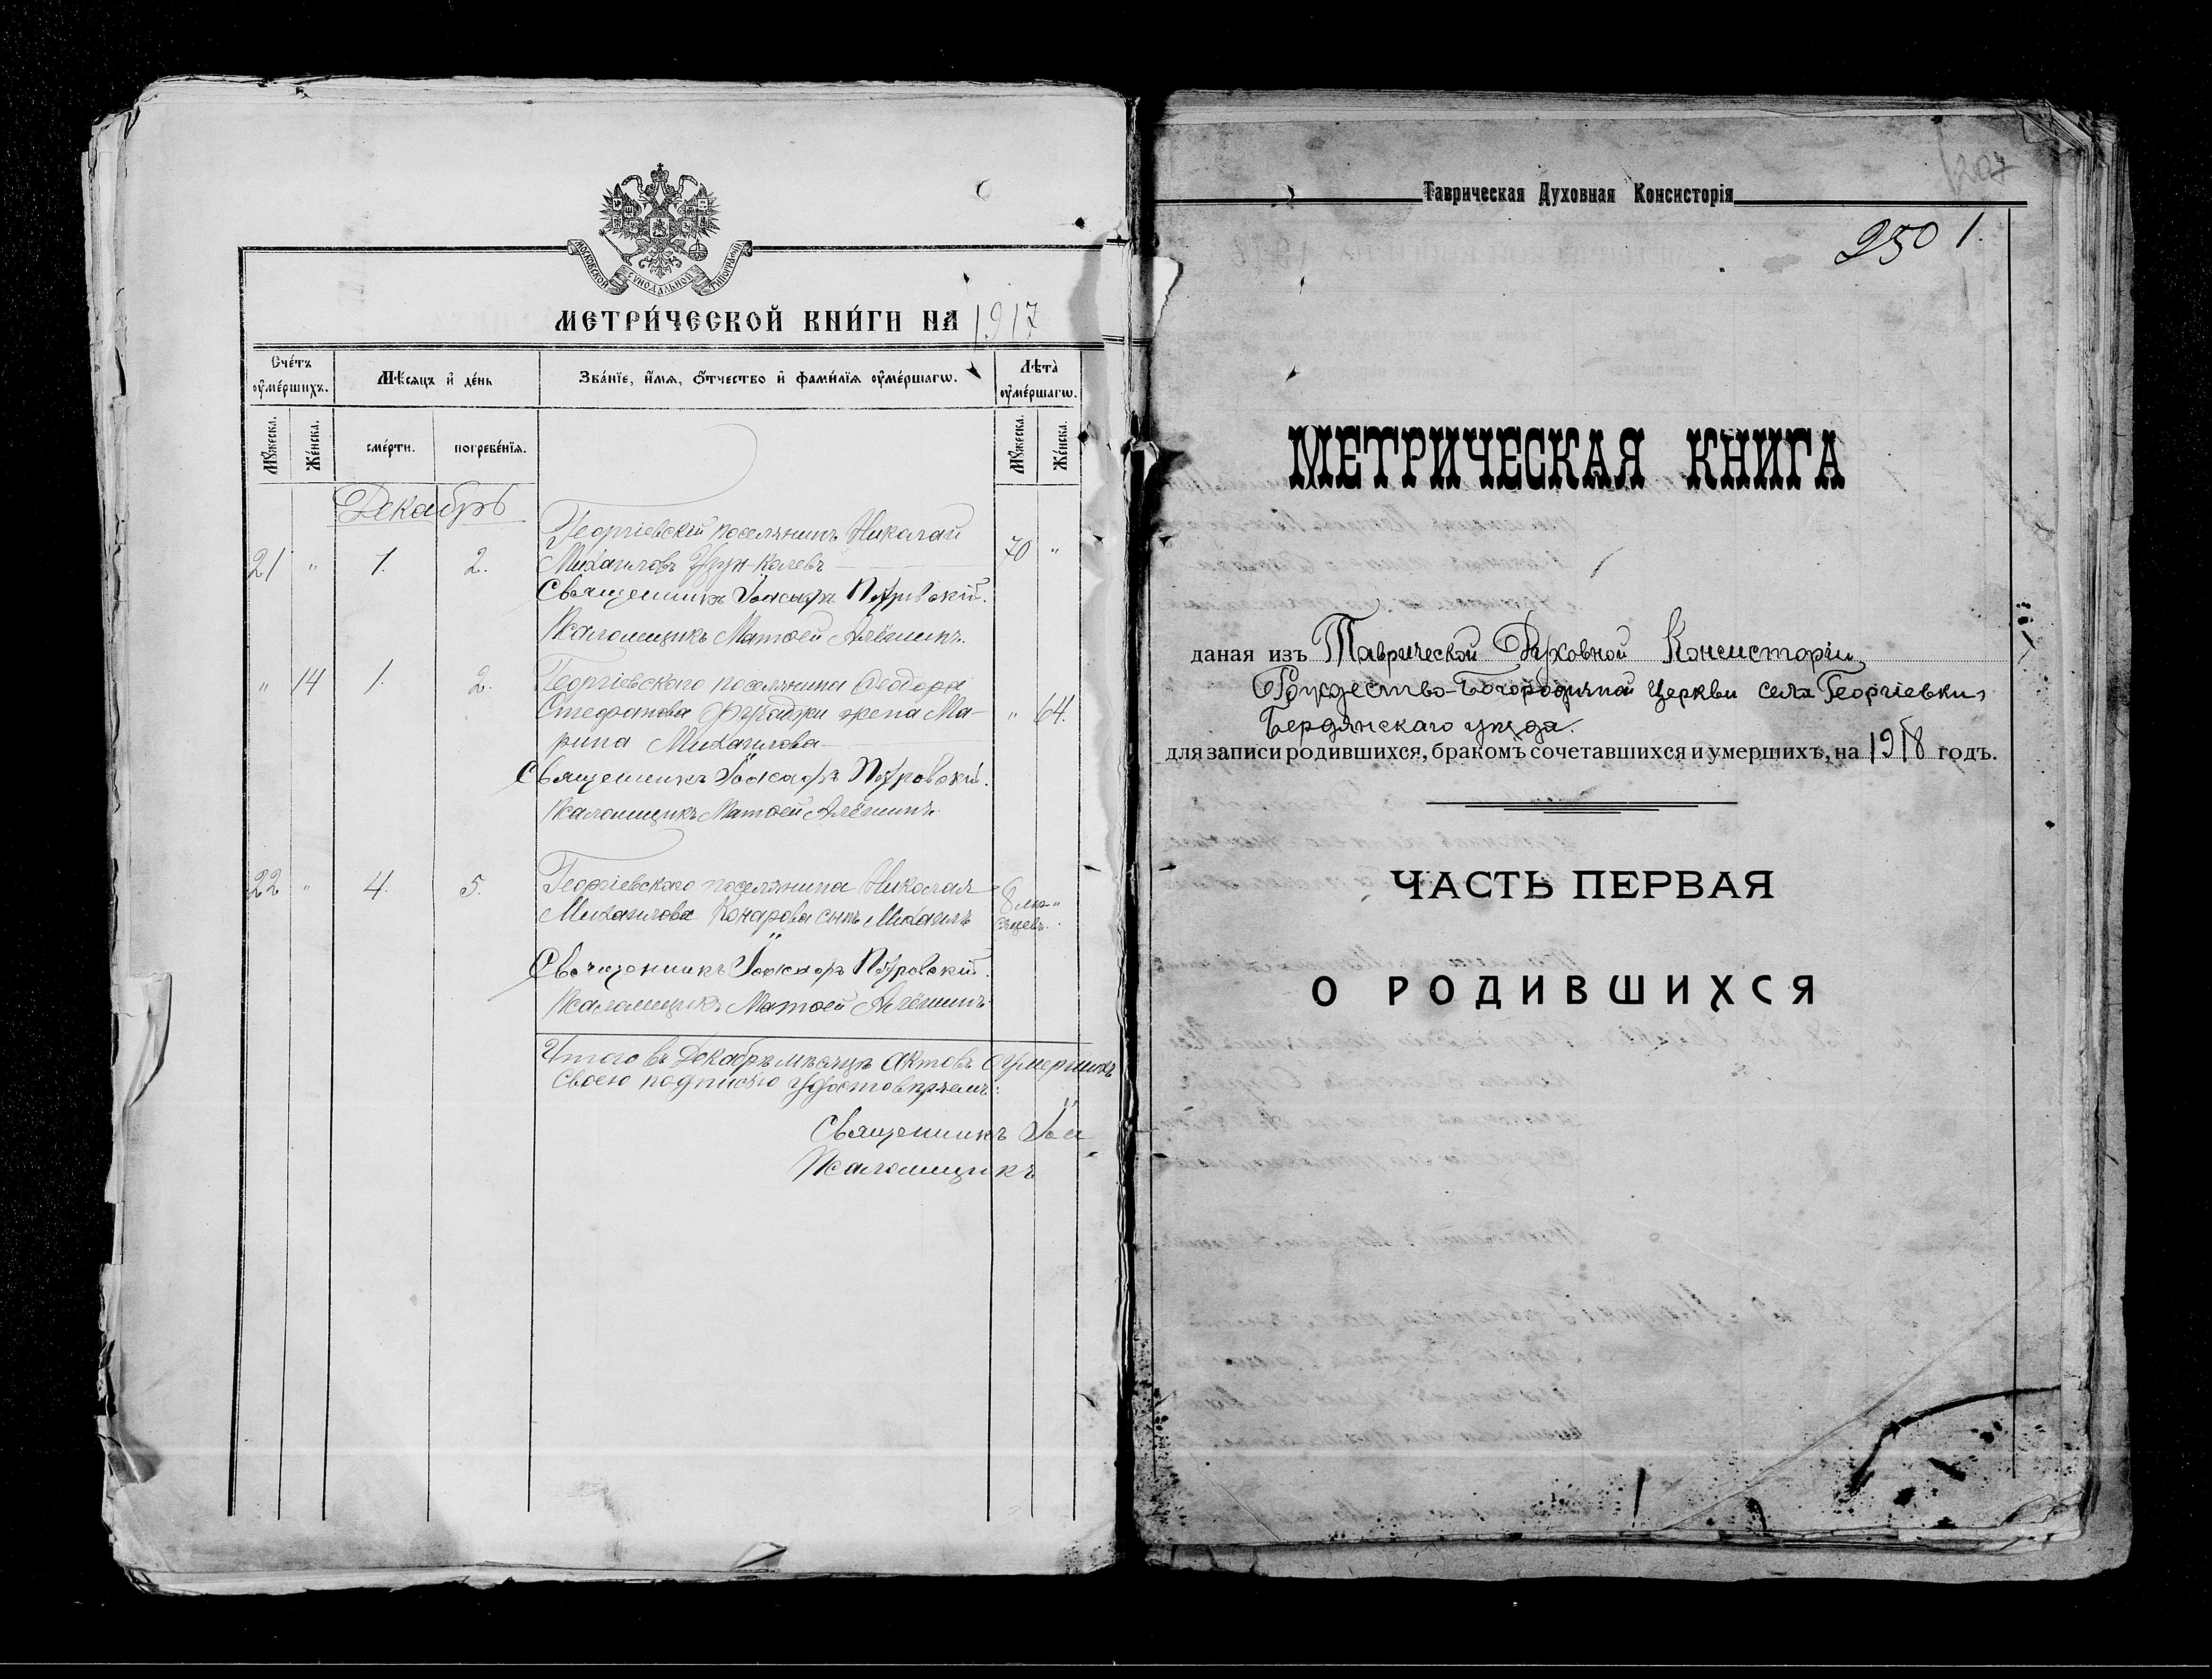 МОСКОВСКОЙ СѴНОДАЛЬНОЙ ТИПОГРАФІИ
МЕТРИ́ЧЕСКОЙ КНИ́ГИ НА 1917
Сче́тъ оу҆ме́ршихъ.
Мѣ́сяцъ и҆ де́нь
Зва́нїе, и҆́мѧ, ѻ҆́тчество и҆ фами́лїѧ оу҆ме́ршагѡ.
Лѣ́та оу҆ме́ршагѡ.
Мꙋ́жеска.
Же́нска.
сме́рти.
погребе́нїѧ.
Мꙋ́жеска.
Же́нска.
Декабрь
Георгіевскій поселянинъ Николай
21 " 1. 2. Михаиловъ Узун-Колевъ 70 "
Священникъ Іоасафъ Петровскій.
Псаломщикъ Матѳей Алёшинъ.
" 14 1. 2. Георгіевскаго поселянина Ѳеодора
Стефанова Фучеджи жена Ма- " 64.
рина Михаилова
Священникъ Іоасафъ Петровскій.
Псаломщикъ Матѳей Алёшинъ.
22 " 4. 5. Георгіевскаго поселянина Николая 8 мѣ- "
Михаилова Конарова сынъ Михаилъ сяцевъ.
Священникъ Іоасафъ Петровскій.
Псаломщикъ Матѳей Алёшинъ
Итого въ Декабрѣ мѣсяцѣ актовъ о умершихъ
своею подписью удостовѣряемъ:
Священникъ Іоа
Псаломщикъ
207
Таврическая Духовная Консисторія
250 1.
МЕТРИЧЕСКАЯ КНИГА
даная изъ Таврической Духовной Консисторіи
Рождество-Богородичной церкви села Георгіевки,
Бердянскаго уѣзда.
для записи родившихся, бракомъ сочетавшихся и умершихъ, на 1918 годъ.
ЧАСТЬ ПЕРВАЯ
О РОДИВШИХСЯ